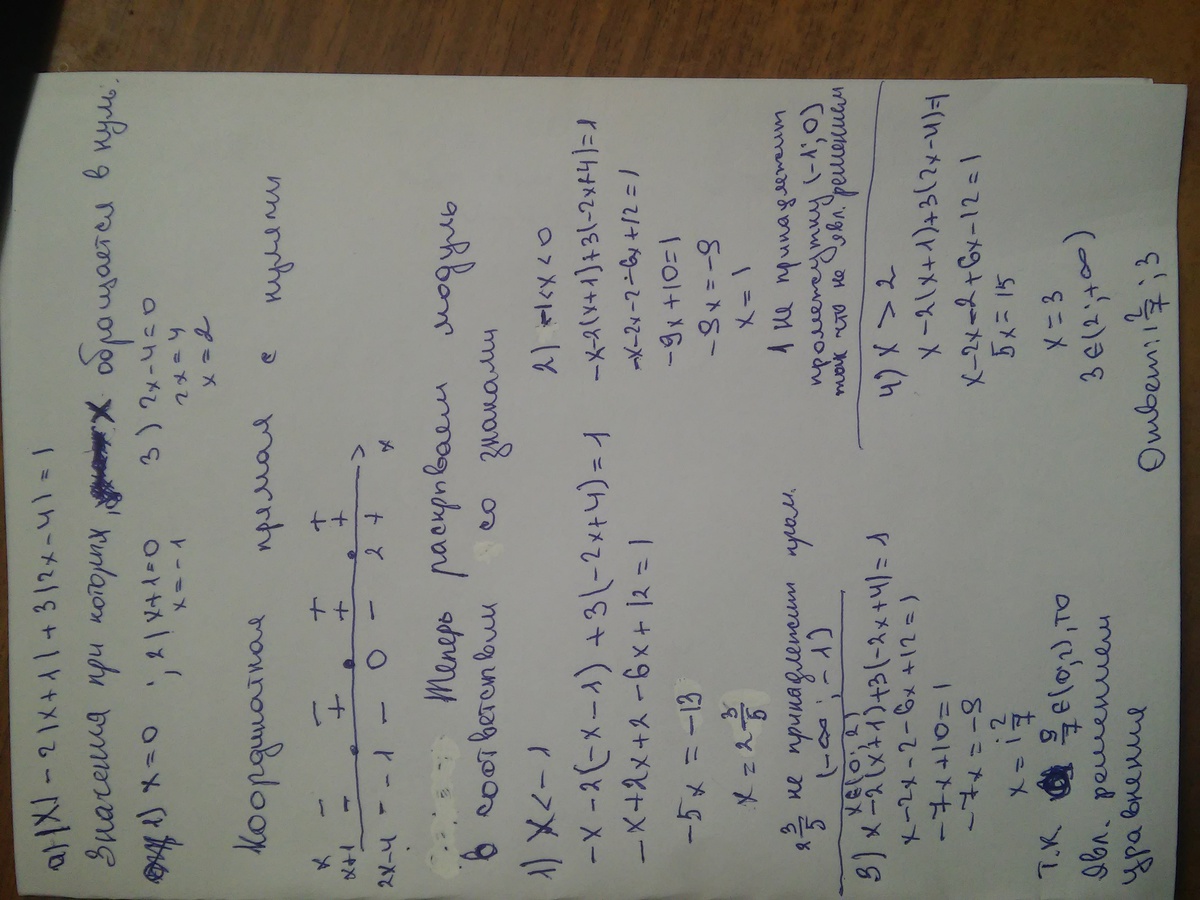 а) |x| - 2|x+1| + 3|2x-4| = 1
Значения при которых x обращается в нуль:
1) x=0 ; 2) x+1=0 3) 2x-4=0
x=-1 2x=4
x=2
Координатная прямая с нулями
x - - + +
x+1 - + + +
-1 0 2 x
2x-4 - - - +
Теперь раскрываем модуль
в соответствии со знаками
1) x<-1
-x-2(-x-1)+3(-2x+4)=1
-x+2x+2-6x+12=1
-5x=-13
x=2 3/5
2 3/5 не принадлежит пром.
(-∞; -1)
2) -1<x<0
-x-2(x+1)+3(-2x+4)=1
-x-2x-2-6x+12=1
-9x+10=1
-9x=-9
x=1
1 не принадлежит
промежутку (-1; 0)
так что не явл. решением
3) x∈(0; 2)
x-2(x+1)+3(-2x+4)=1
x-2x-2-6x+12=1
-7x+10=1
-7x=-9
x=1 2/7
Т.К 9/7 ∈(0;2), то
явл. решением
уравнение
4) x>2
x-2(x+1)+3(2x-4)=1
x-2x-2+6x-12=1
5x=15
x=3
3∈(2;+∞)
Ответ: 1 2/7; 3